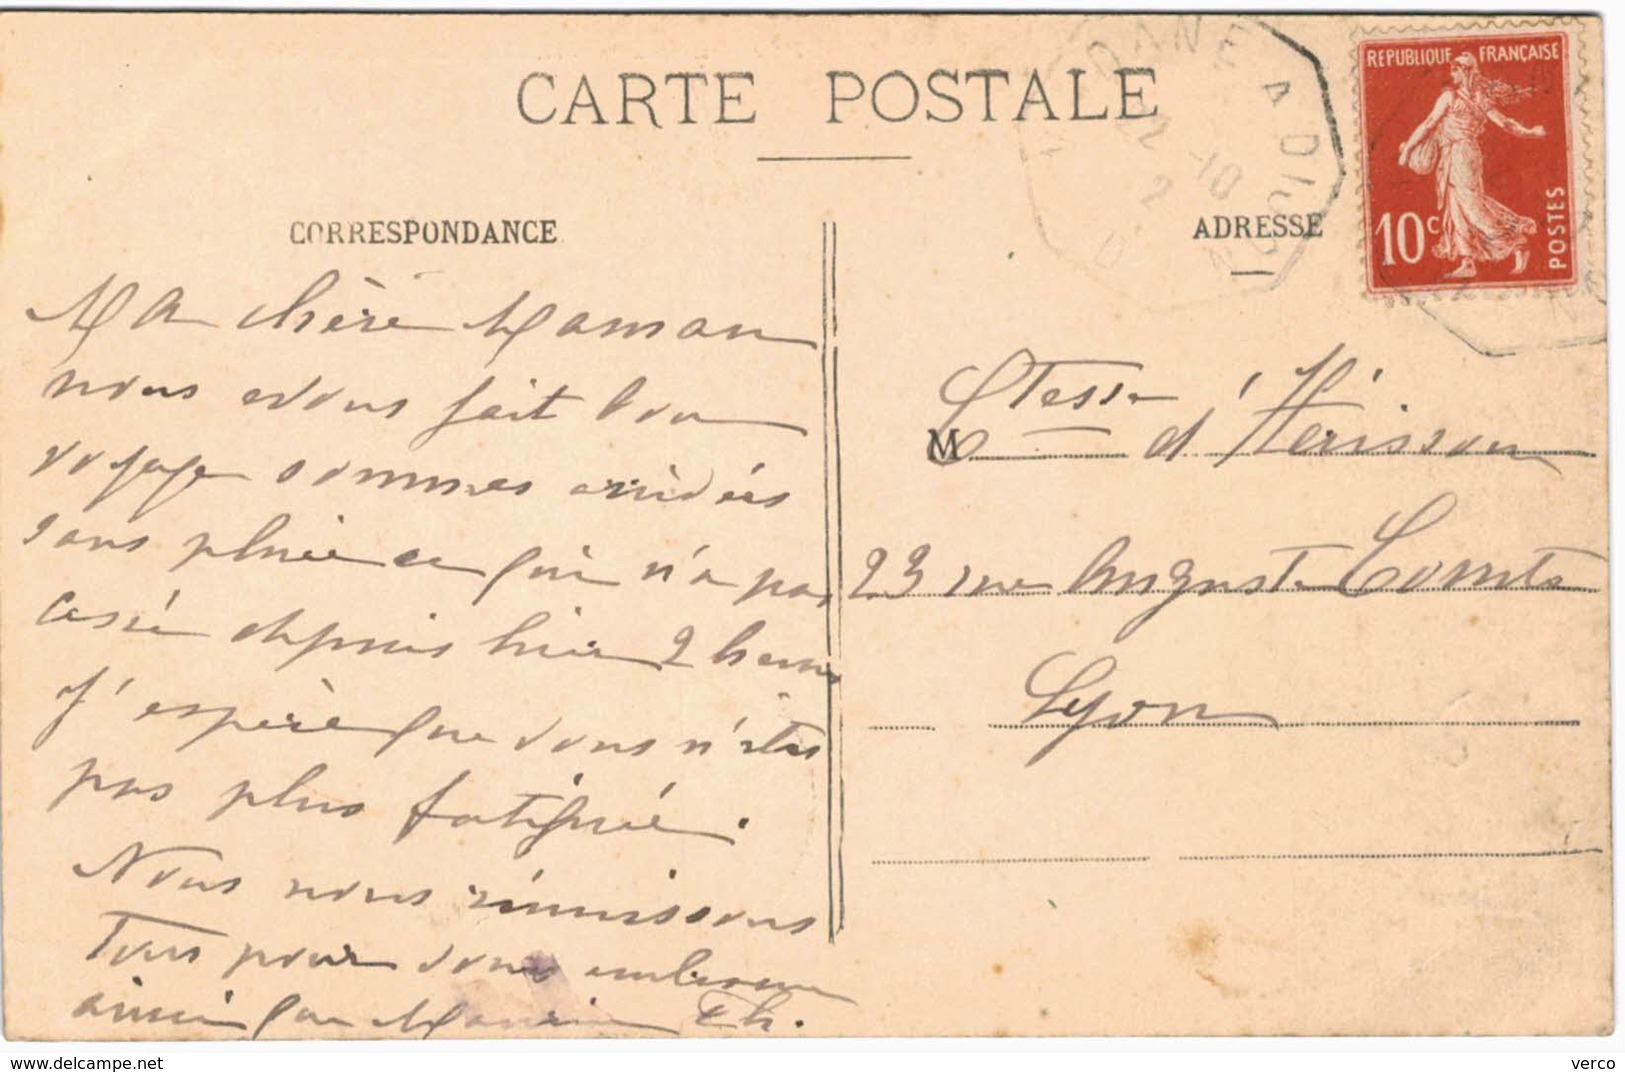 CARTE POSTALE
REPUBLIQUE FRANÇAISE
10c
POSTES
CORRESPONDANCE
ADRESSE
Ma chère Maman
nous avons fait bon
voyage sommes arrivés
sans pluie ce qui n'a pas
cessé depuis hier 2 heures
J'espère que vous n'êtes
pas plus fatiguée.
Nous nous réunissons
Tous pour vous embrasser
ainsi que Th.
M Ctesse d'Hérisson
23 rue Auguste Comte
Lyon
delcampe.net
verco